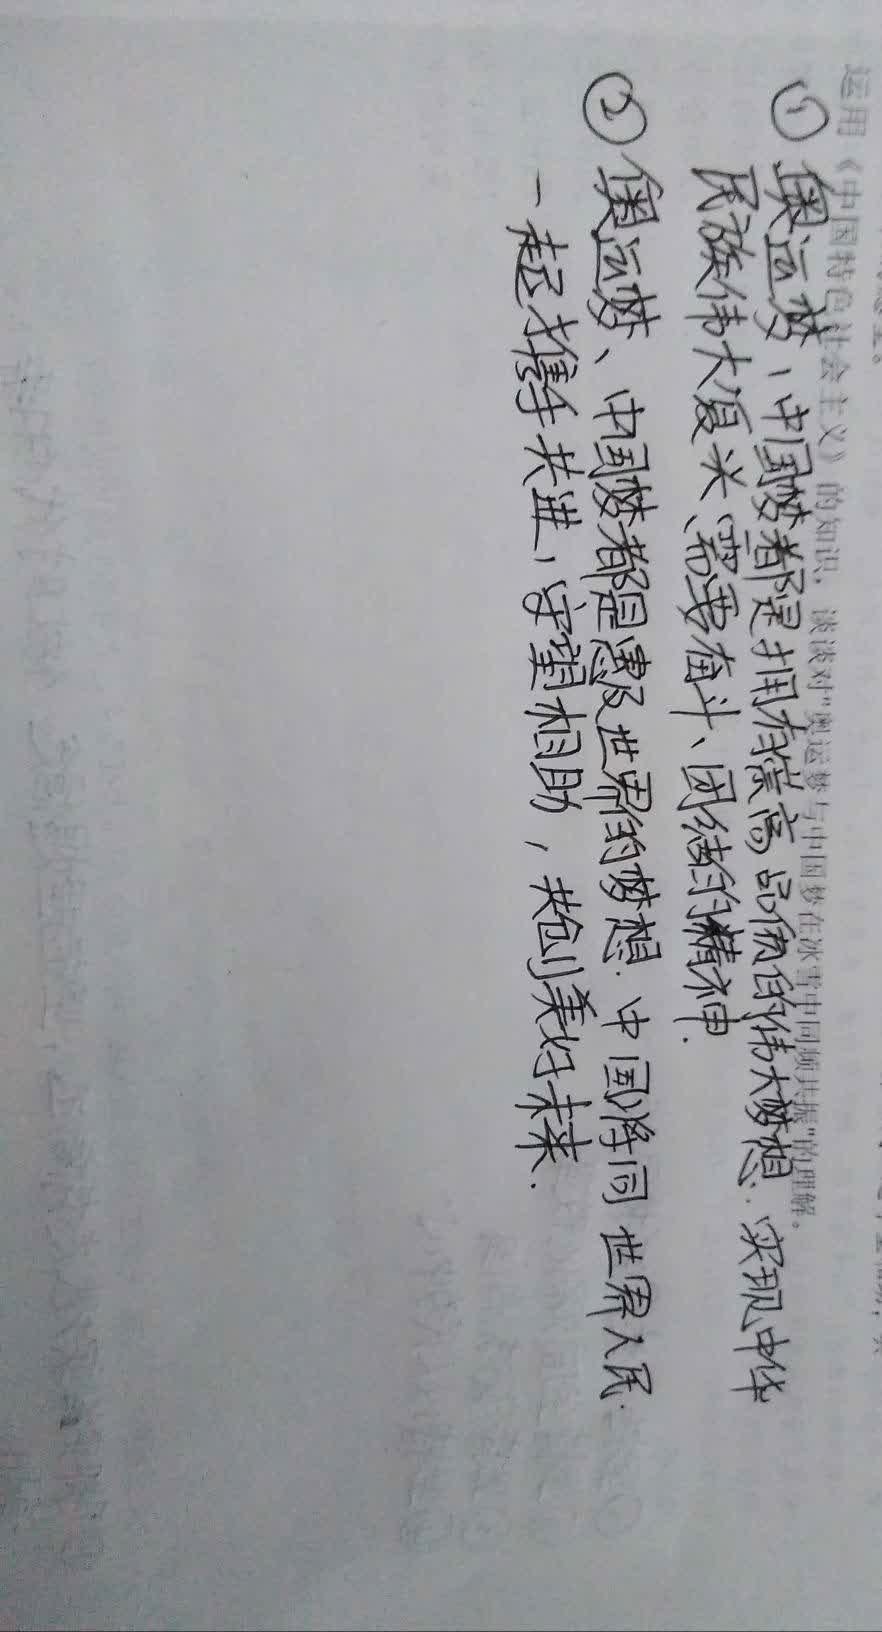 运用《中国特色社会主义》的知识，谈谈对“奥运梦与中国梦在冰雪中同频共振”的理解。
① 奥运梦，中国梦都是拥有崇高品质的伟大梦想. 实现中华
民族伟大复兴、需要奋斗、团结的精神.
② 奥运梦、中国梦都是惠及世界的梦想. 中国将同世界人民
一起才携手共进，守望相助，共创美好未来.